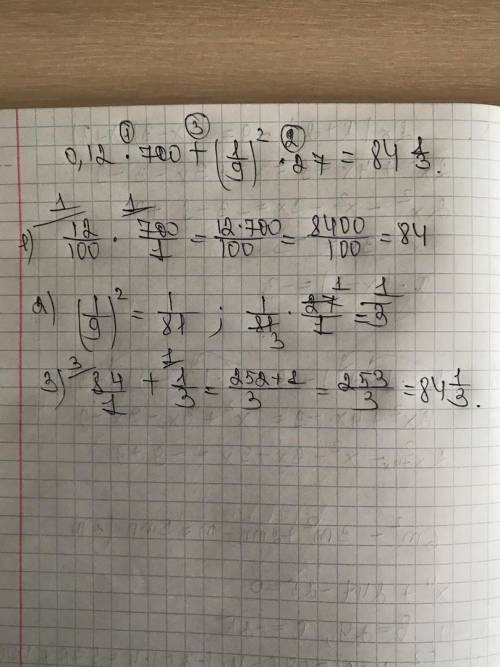 ① ③ ②
0,12 · 700 + (1/9)² · 27 = 84 1/3.
1 1
1) 12/100 · 700/1 = 12·700/100 = 8400/100 = 84
2) (1/9)² = 1/81 ; 1/81 · 27/1 = 1/3
1
3
3 1
3) 84/1 + 1/3 = 252+1/3 = 253/3 = 84 1/3.